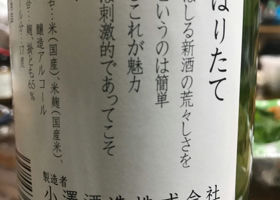 ばりたて
ばしる新酒の荒々しさを
というのは簡単
これが魅力
は刺激的であってこそ
米(国産)、米麹(国産米)、
醸造アルコール
麹、掛とも65%
17度
製造者
小澤酒造株式会社